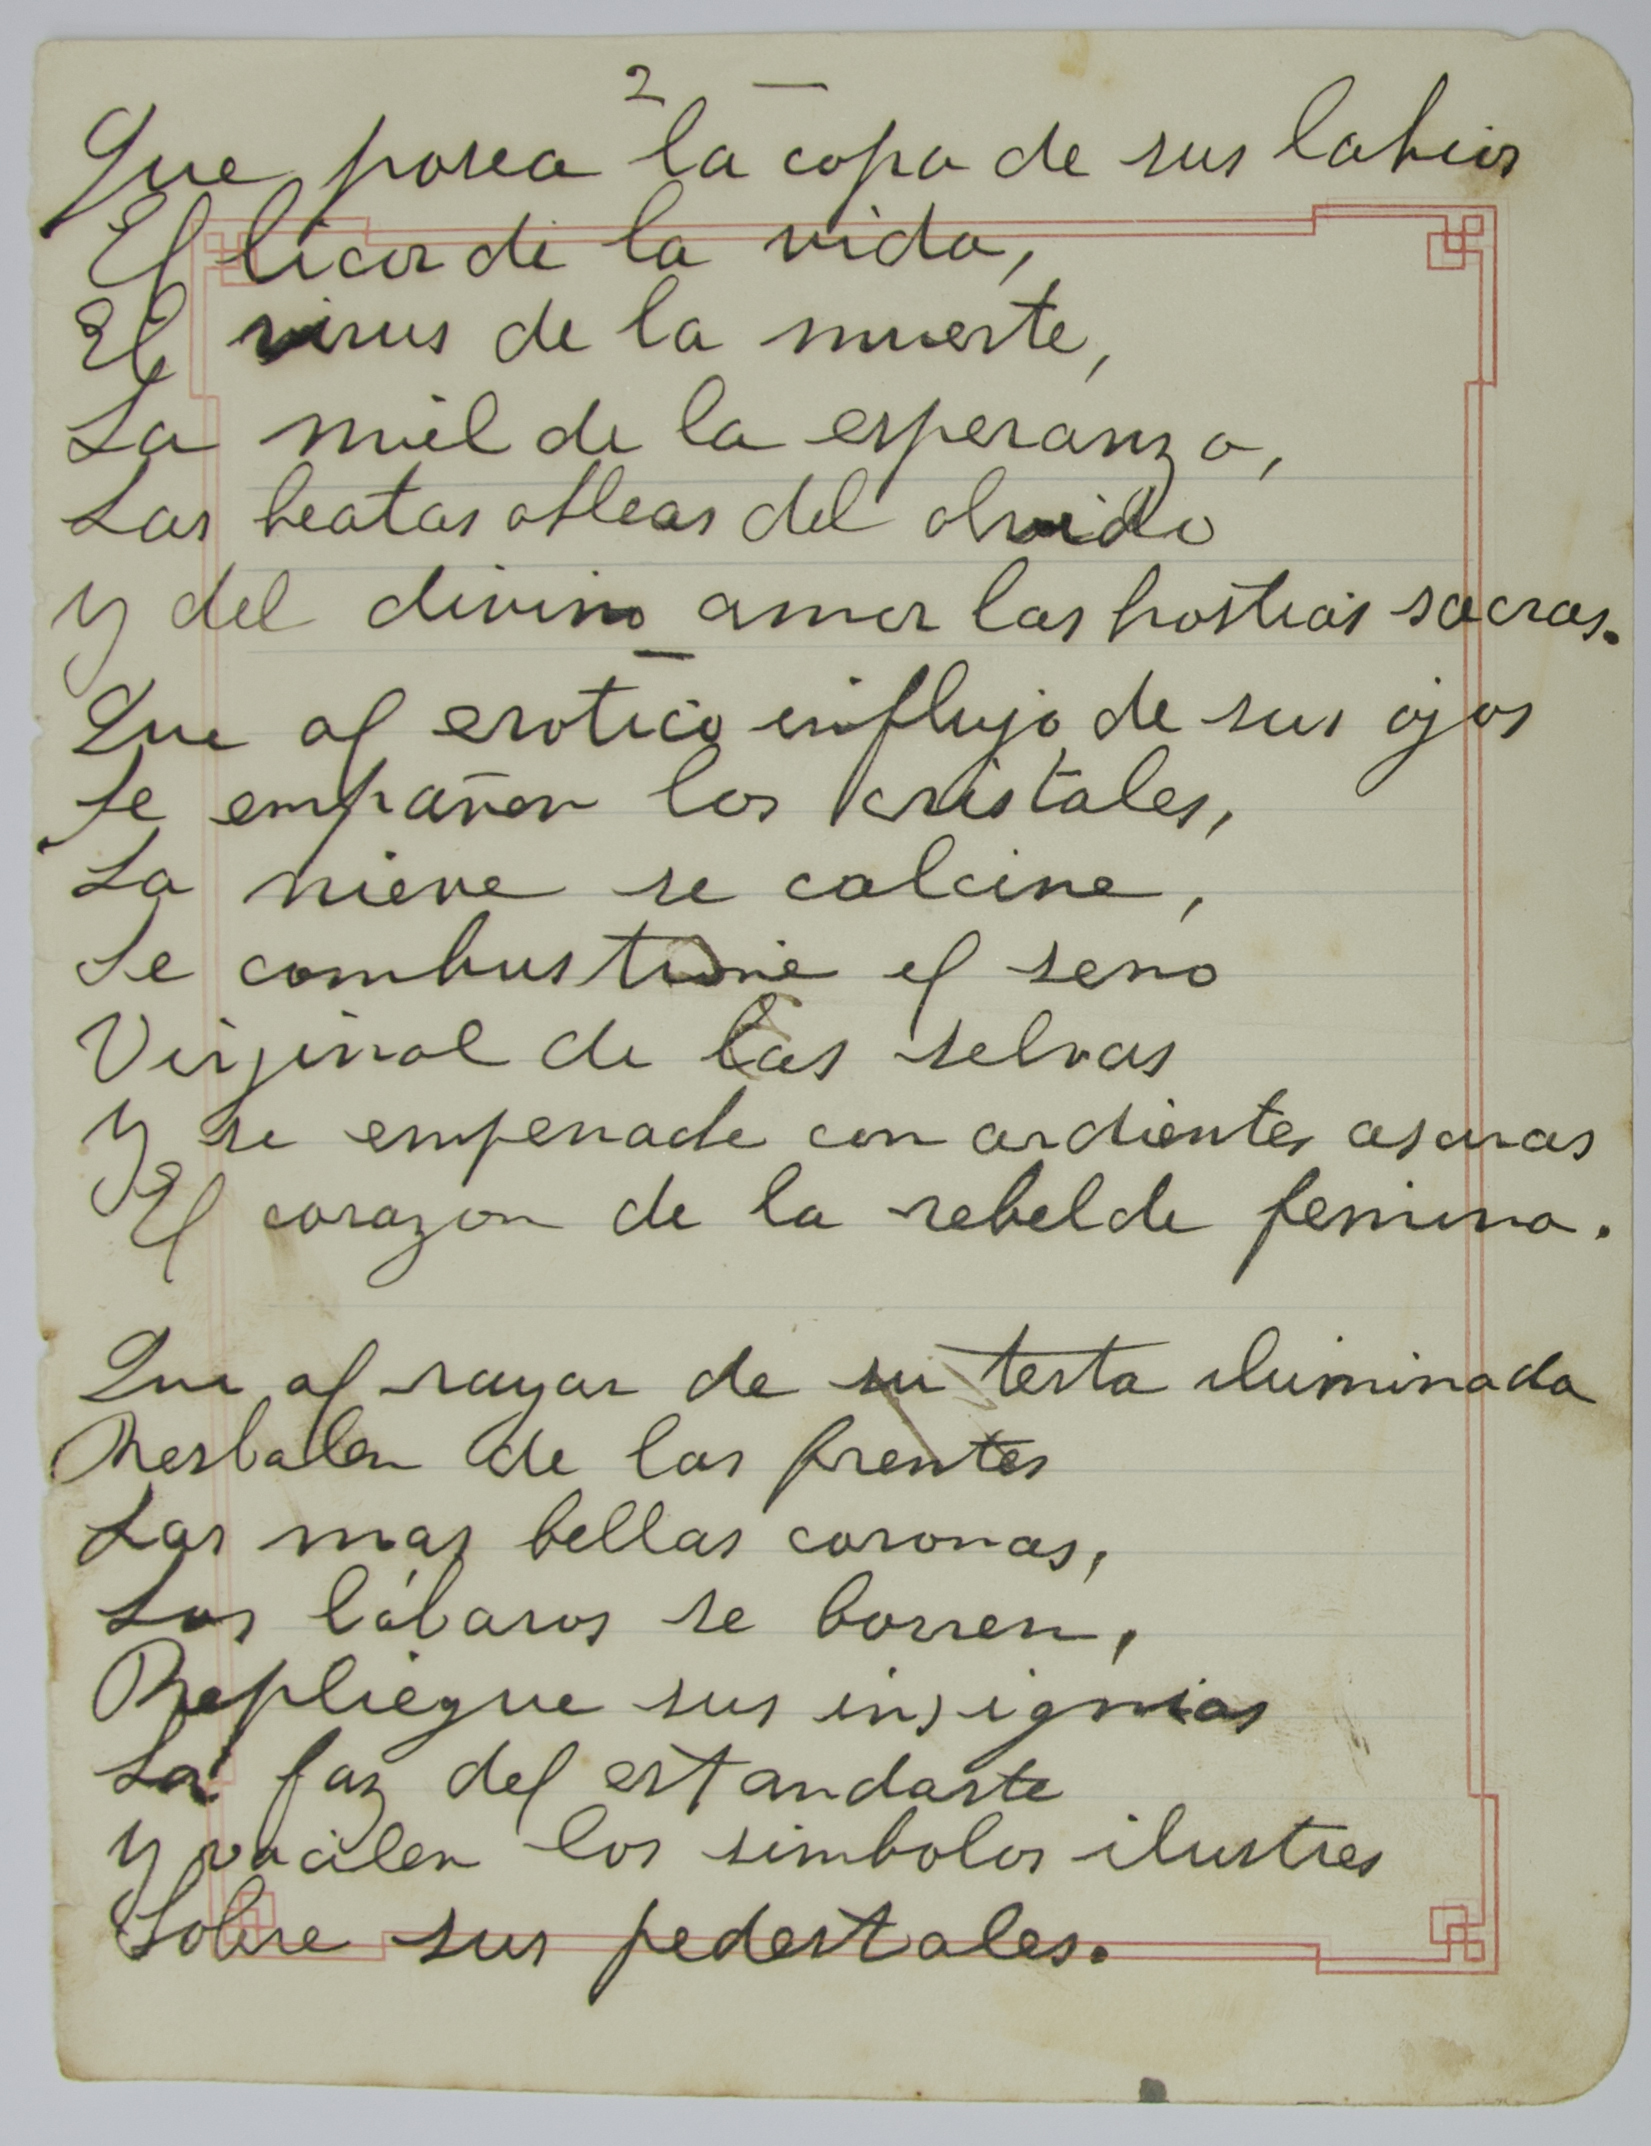 2 —
Que posea la copa de sus labios
El licor de la vida,
El virus de la muerte,
La miel de la esperanza,
Las beatas obleas del olvido
y del divino amor las hostias sacras.
—
Que al erotico influjo de sus ojos
Se empañen los cristales,
La nieve se calcine,
Se combustione el seno
Virjinal de las selvas
y se empenade con ardientes ascuas
El corazon de la rebelde femina.
Que al rayar de su testa iluminada
Resbalen de las frentes
Las mas bellas coronas,
Los lábaros se borren,
Repliegue sus insignias
La faz del estandarte
y vacilen los simbolos ilustres
Sobre sus pedestales.